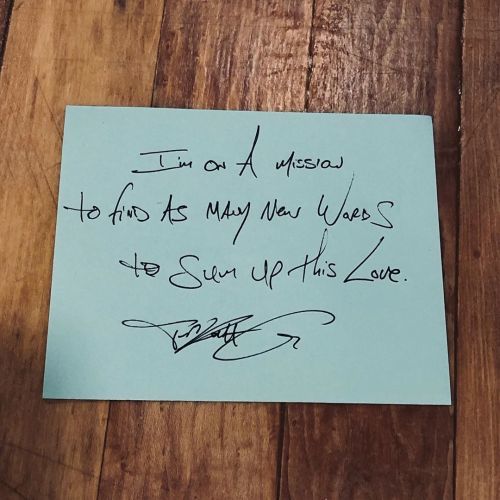 I'm on A mission
to find As Many New Words
to Sum up this Love.